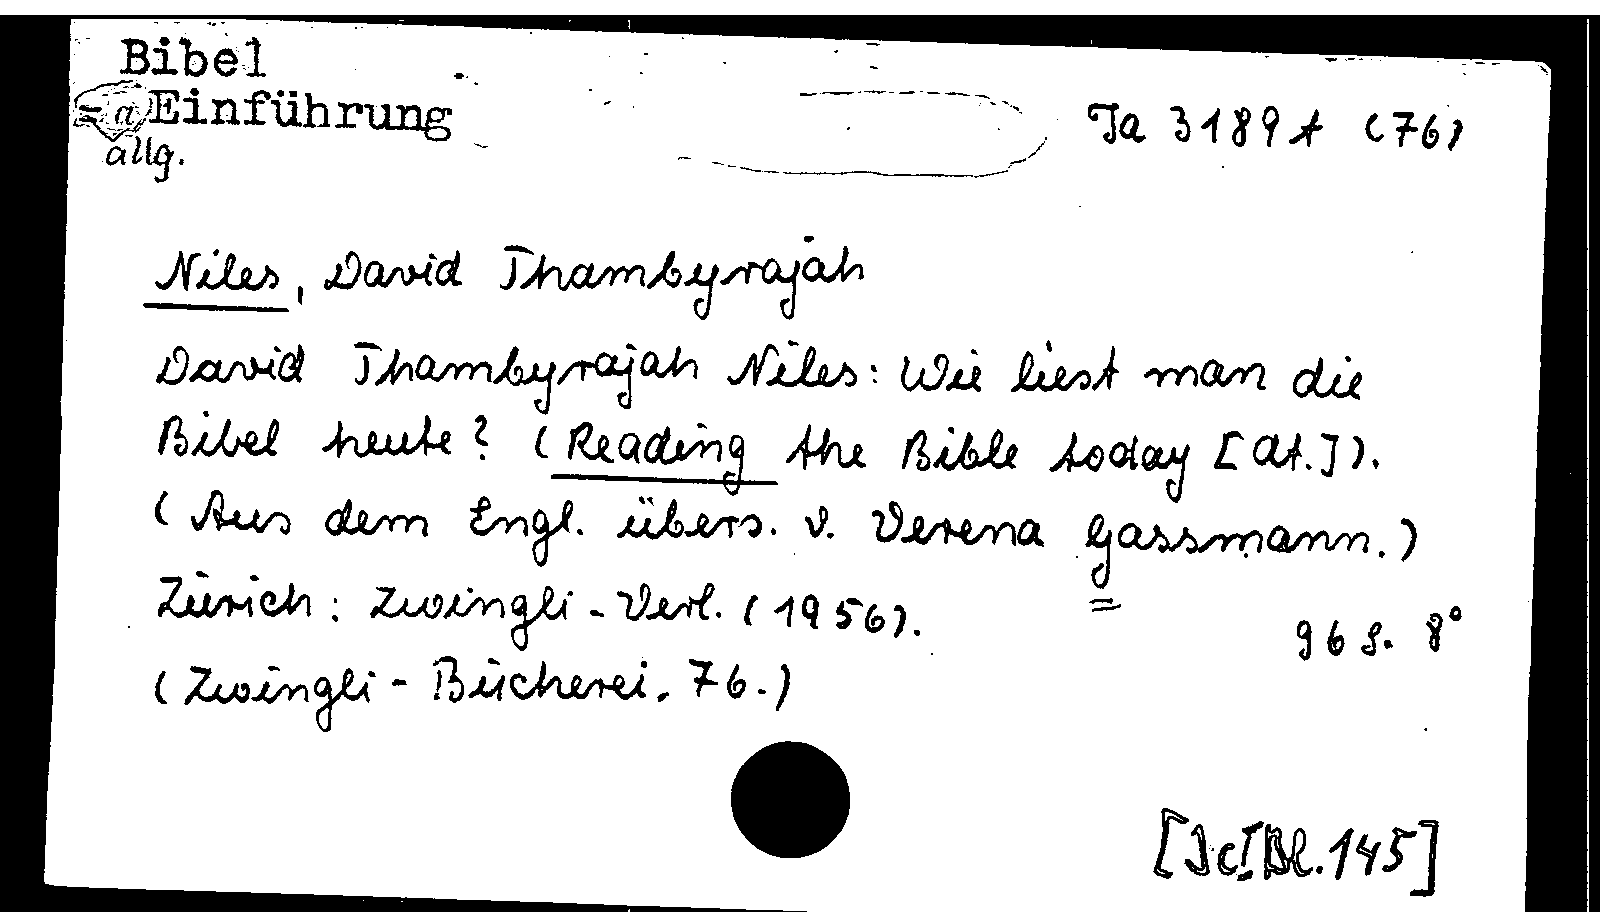 Bibel
= a Einführung
allg.
Ia 3189 t (76)
Niles, David Thambyrajah
David Thambyrajah Niles: Wie liest man die
Bibel heute? (Reading the Bible today [dt.]).
(Aus dem Engl. übers. v. Verena Gassmann.)
Zürich: Zwingli-Verl. (1956).
96 S. 8°
(Zwingli-Bücherei. 76.)
[Ic I Bl. 145]